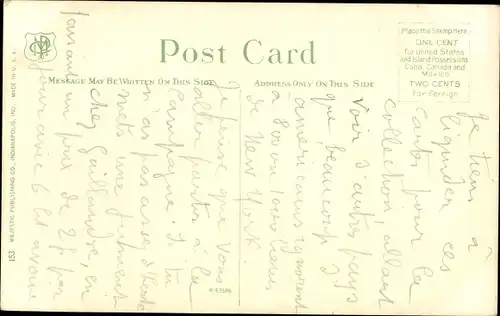 Post Card
MESSAGE MAY BE WRITTEN ON THIS SIDE
ADDRESS ONLY ON THIS SIDE
Place the Stamp here
ONE CENT
for United States
and Island Possessions
Cuba, Canada and
Mexico
TWO CENTS
For Foreign
153 MAJESTIC PUBLISHING CO., INDIANAPOLIS, IND. MADE IN U. S. A.
Je tiens à
liquider ces
cartes pour la
collection, allant
voir d'autres pays
que beaucoup d'
américains ignorent
à 800 ou 1000 lieues
de New York.
Je pense que vous
allez partir à la
campagne. Si tu
n'as pas assez d'
mets une
chez Guillaudre, en
faisant un pour de 2 f par
jour avec 6